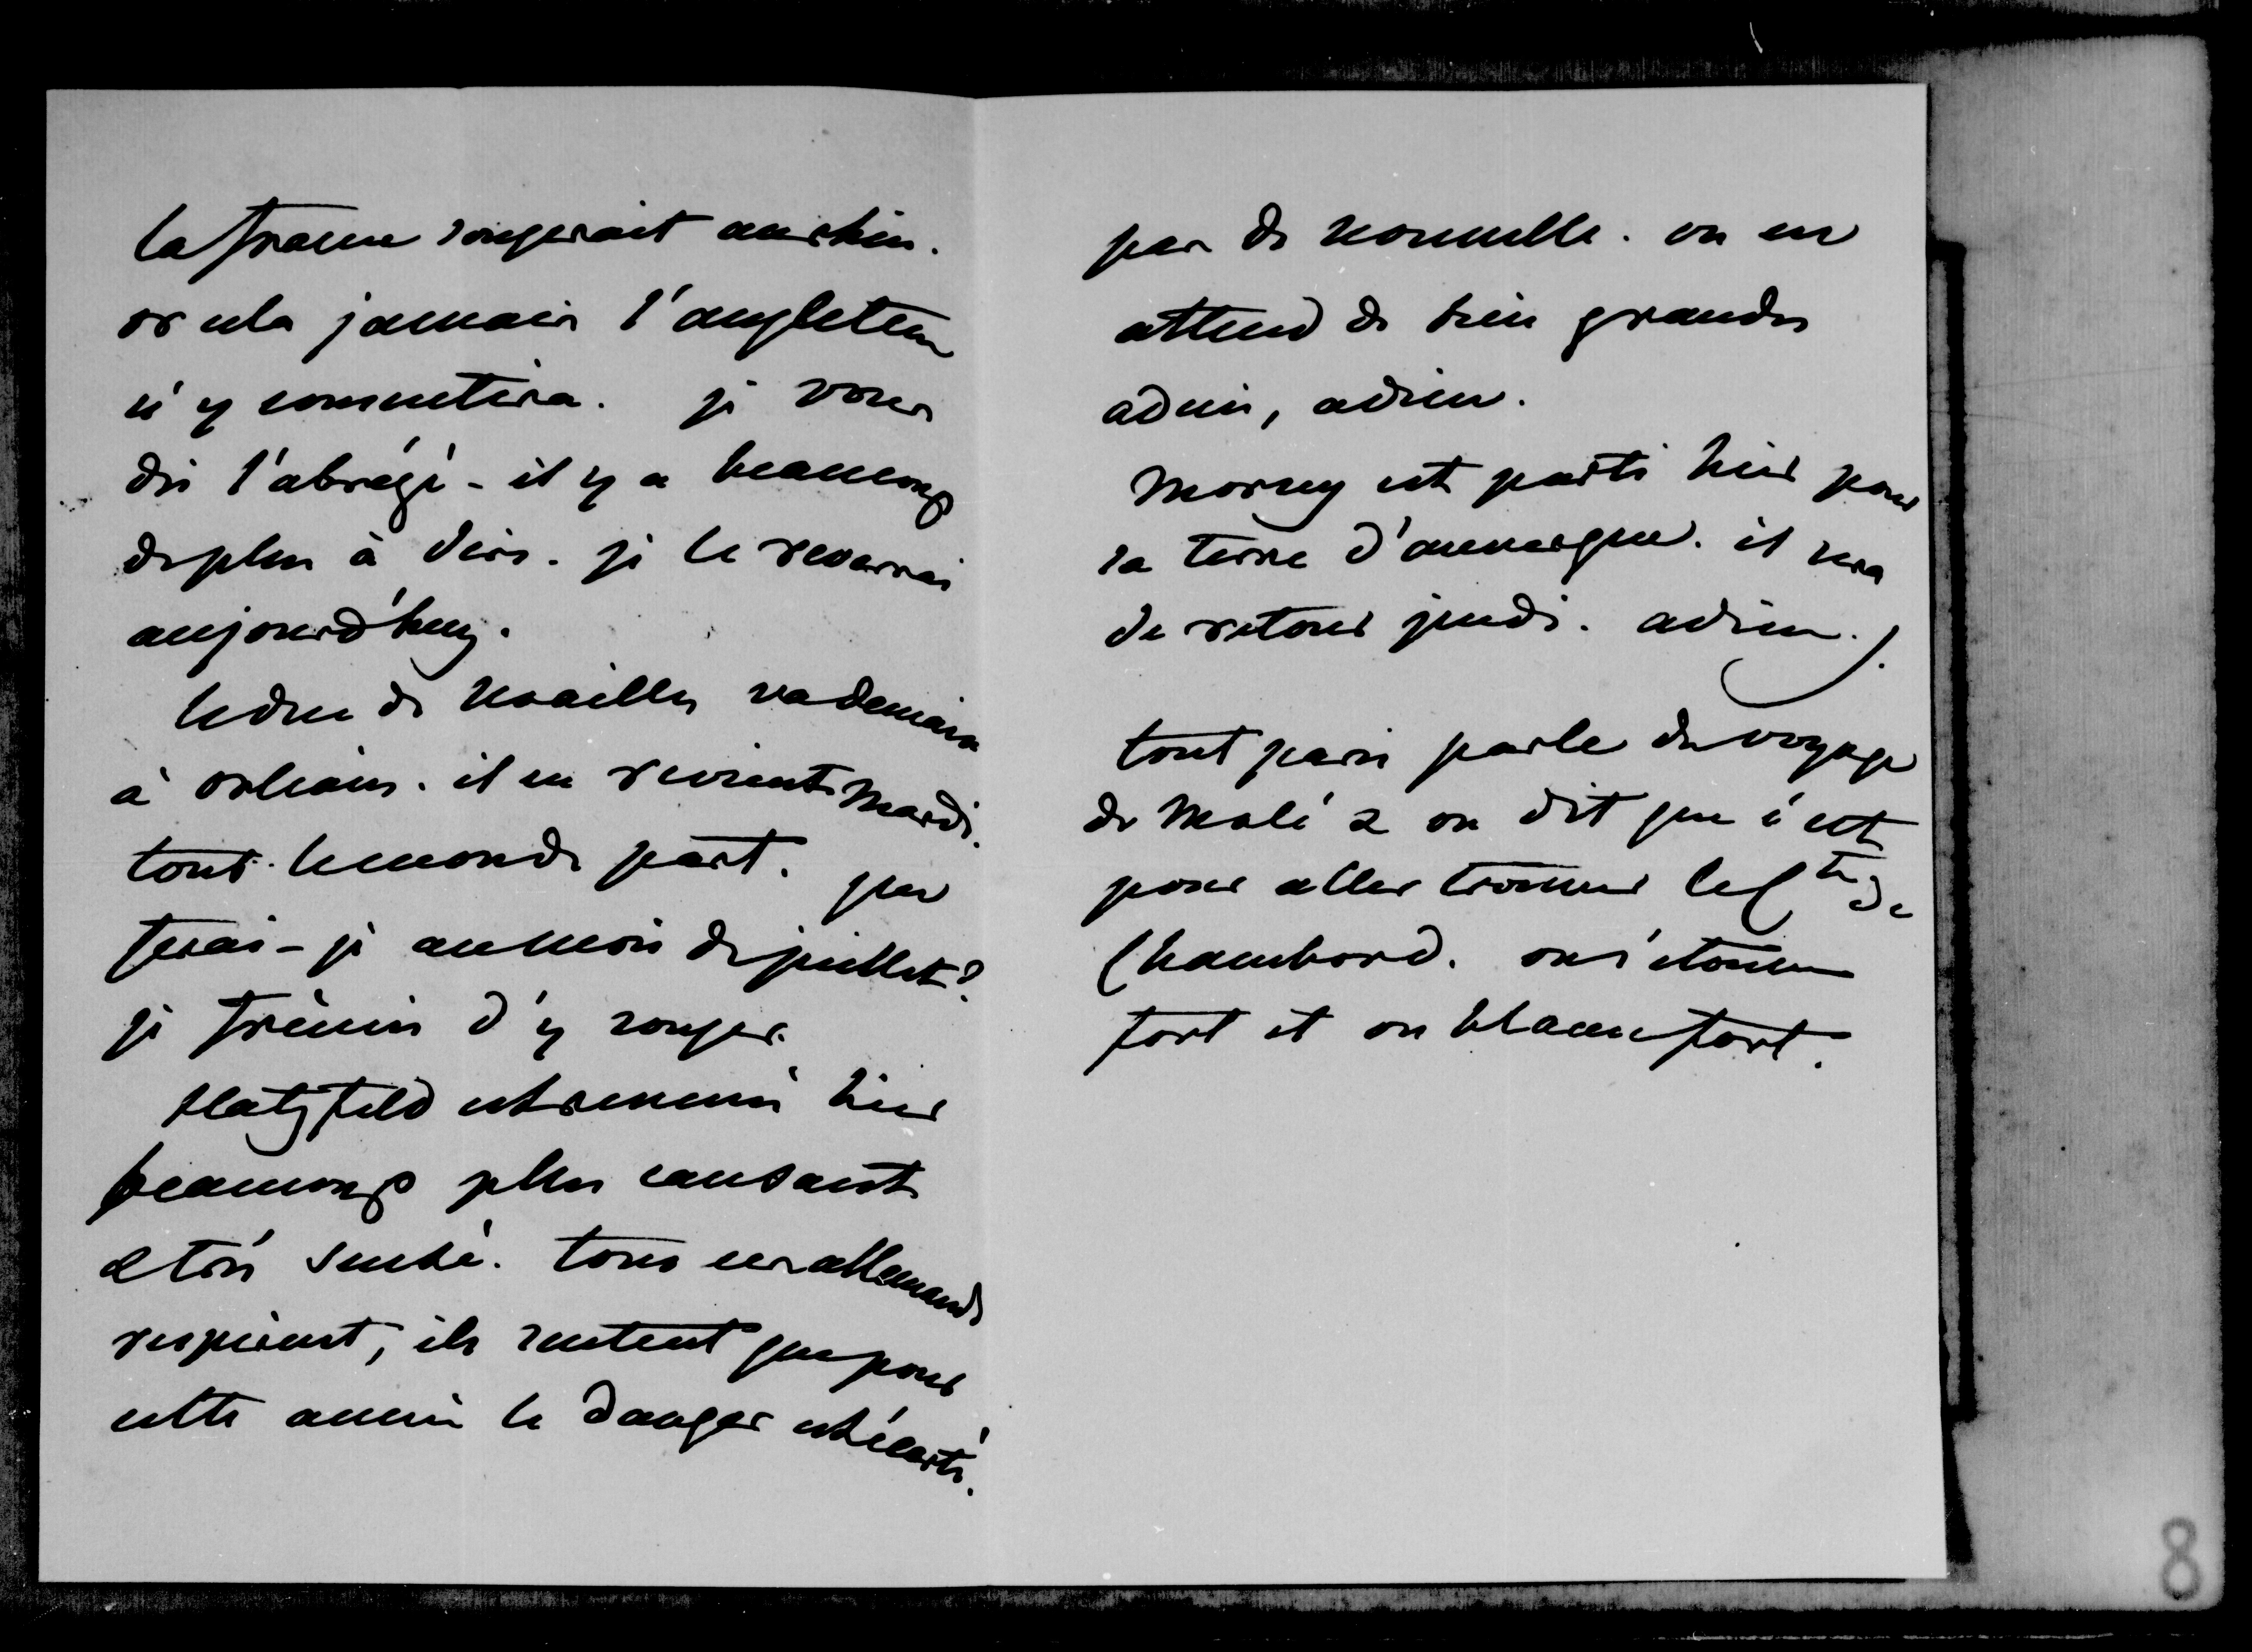 la france songerait au rhin.
or cela jamais l'angleterre
n'y consentira. je vous
dis l'abrégé - il y a beaucoup
de plus à dire. je le reverrai
aujourd'huy.
le duc de noailles va demain
à orléans. il en revient mardi.
tout le monde part. que
ferai-je au mois de juillet?
je frémis d'y songer.
Hatzfeld est revenu hier
beaucoup plus causant
& très sensé. tous ces allemands
respirent, ils sentent que pour
cette année le danger est écarté.
pas de nouvelle. on en
attend de bien grandes
adieu, adieu.
Morny est parti hier pour
sa terre d'auvergne. il sera
de retour jeudi. adieu.).
tout paris parle du voyage
de Molé & on dit que c'est
pour aller trouver le Cte de
Chambord. on s'étonne
fort et on blame fort.
8